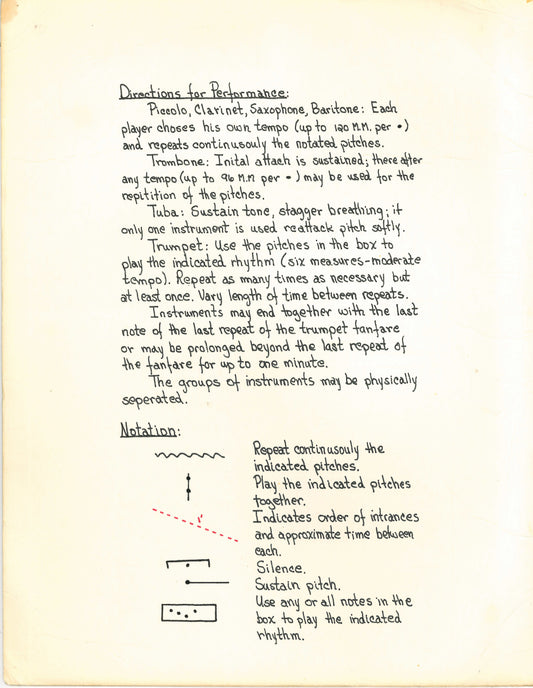 Directions for Performance:
Piccolo, Clarinet, Saxophone, Baritone: Each
player choses his own tempo (up to 120 M.M. per •)
and repeats continusouly the notated pitches.
Trombone: Inital attach is sustained; there after
any tempo (up to 96 M.M per •) may be used for the
repitition of the pitches.
Tuba: Sustain tone, stagger breathing; if
only one instrument is used reattack pitch softly.
Trumpet: Use the pitches in the box to
play the indicated rhythm (six measures-moderate
tempo). Repeat as many times as necessary but
at least once. Vary length of time between repeats.
Instruments may end together with the last
note of the last repeat of the trumpet fanfare
or may be prolonged beyond the last repeat of
the fanfare for up to one minute.
The groups of instruments may be physically
seperated.
Notation:
Repeat continusouly the
indicated pitches.
Play the indicated pitches
together.
1'
Indicates order of intrances
and approximate time between
each.
Silence.
Sustain pitch.
Use any or all notes in the
box to play the indicated
rhythm.